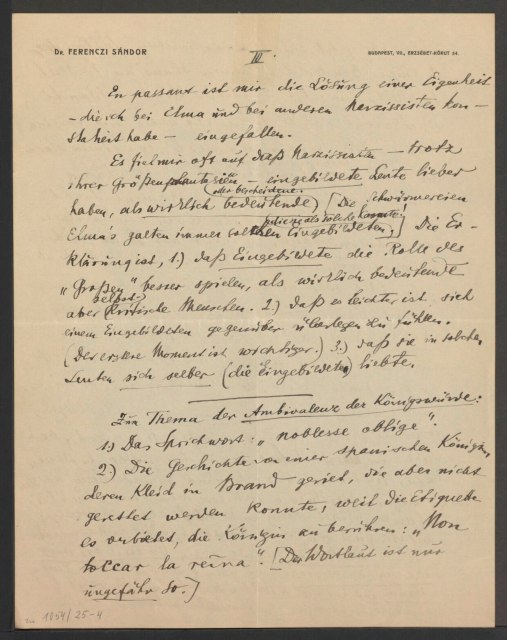 Dr. FERENCZI SÁNDOR
III.
BUDAPEST, VII., ERZSÉBET-KÖRUT 54.
En passant ist mir die Lösung einer Eigenheit
– die ich bei Elma und bei anderen Narzissisten kon-
statiert habe – eingefallen.
Es fiel mir oft auf daß Narzissisten – trotz
ihrer Größenphantasien – eingebildete Leute lieber
(aber bescheidene)
haben, als wirklich bedeutende) [Die Schwärmereien
die ich als solche kannte
Elma's galten immer solchen Eingebildeten.] Die Er-
klärung ist, 1.) daß Eingebildete die Rolle des
„Großen" besser spielen, als wirklich bedeutende
selbst
aber kritische Menschen. 2.) daß es leichter ist, sich
einem Eingebildeten gegenüber überlegen zu fühlen.
(Der erstere Moment ist wichtiger.) 3.) daß sie in solchen
Leuten sich selber (die Eingebildeten) liebte.
Zum Thema der Ambivalenz der Königswürde:
1.) Das Sprichwort: „noblesse oblige".
2.) Die Geschichte von einer spanischen Königin,
deren Kleid in Brand geriet, die aber nicht
gerettet werden konnte, weil die Etiquette
es verbietet, die Königin zu berühren: „Non
toccar la reina". [Der Wortlaut ist nur
ungefähr so.]
1054/25-4